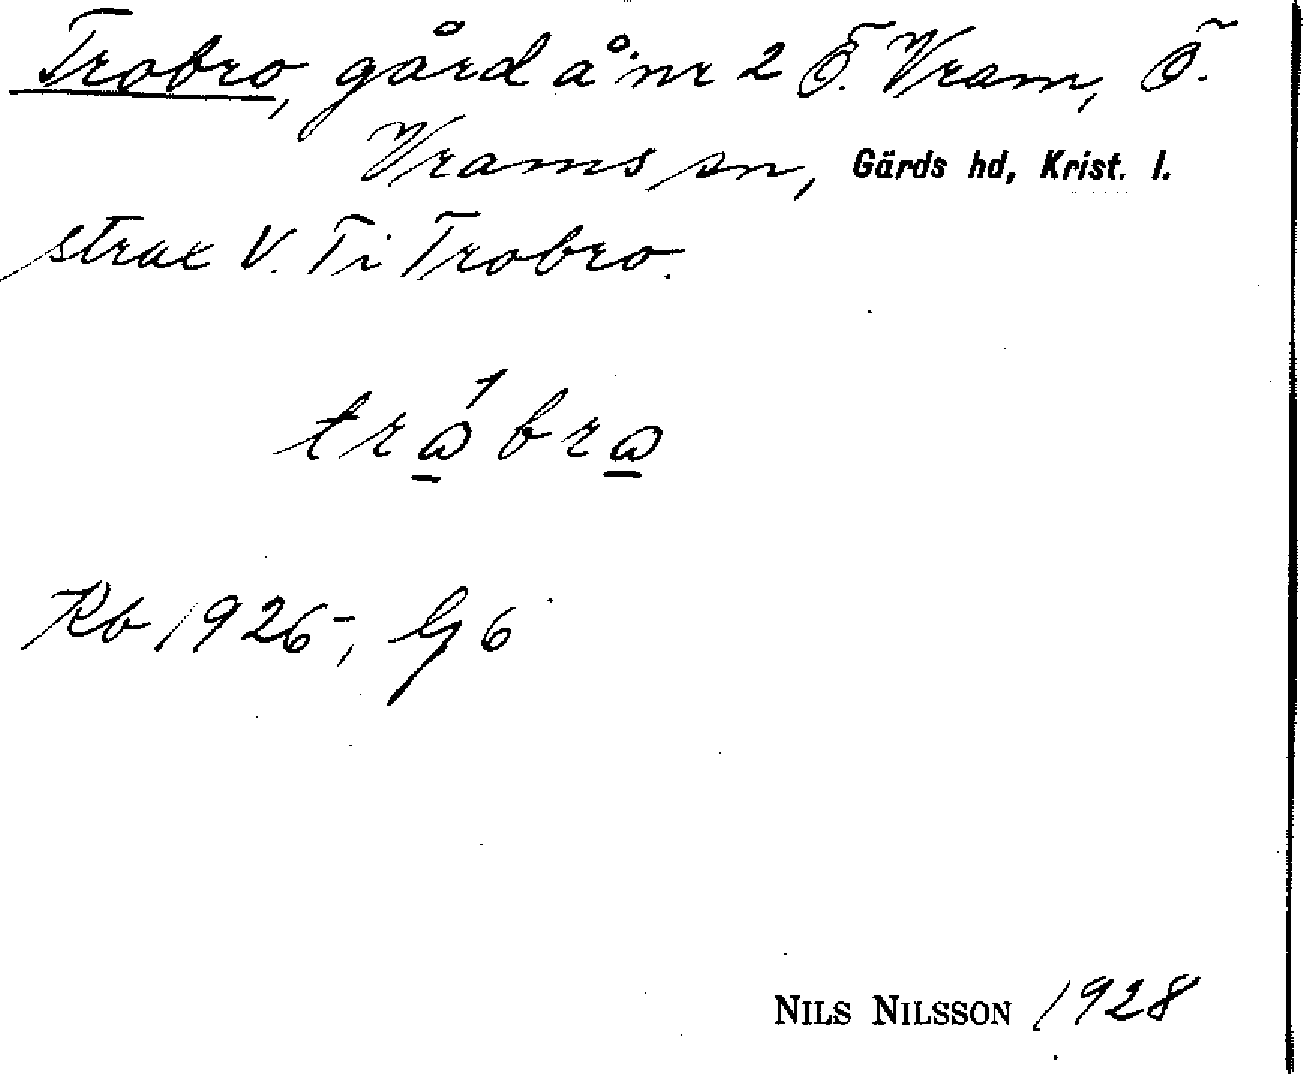 Trobro, gård å nr 2 Ö. Vram, Ö.
Vrams sn, Gärds hd, Krist. l.
strax V. Ti Trobro.
trώ̲brω̲
Rb 1926-, G 6
NILS NILSSON 1928